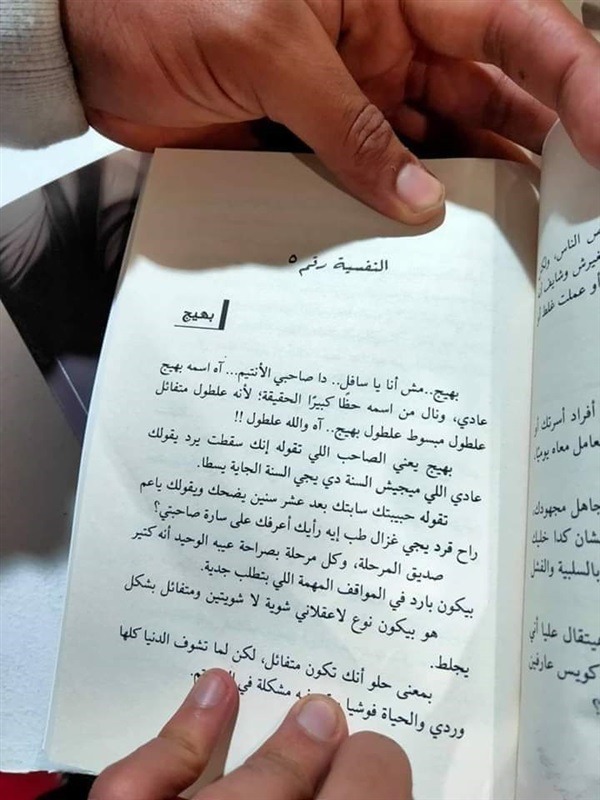 النفسية رقم ٥
بهيج
بهيج..مش أنا يا سافل.. دا صاحبي الأنتيم... آه اسمه بهيج
عادي، ونال من اسمه حظًا كبيرًا الحقيقة؛ لأنه علطول متفائل
علطول مبسوط علطول بهيج.. آه والله علطول !!
بهيج يعني الصاحب اللي تقوله إنك سقطت يرد يقولك
عادي اللي ميجيش السنة دي يجي السنة الجاية يسطا.
تقوله حبيبتك سابتك بعد عشر سنين يضحك ويقولك ياعم
راح قرد يجي غزال طب إيه رأيك أعرفك على سارة صاحبتي؟
صديق المرحلة، وكل مرحلة بصراحة عيبه الوحيد أنه كتير
بيكون بارد في المواقف المهمة اللي بتطلب جدية.
هو بيكون نوع لاعقلاني شوية لا شويتين ومتفائل بشكل
يجلط.
بمعنى حلو أنك تكون متفائل، لكن لما تشوف الدنيا كلها
وردي والحياة فوشيا مشكلة في
س الناس، ولكن
وشايف
أو عملت غلط
أفراد أسرتك
معاه يوميًا،
جاهل مجهودك،
شان كدا خليك
بالسلبية والفشل
هيتقال عليا أني
كويس عارفين
؟